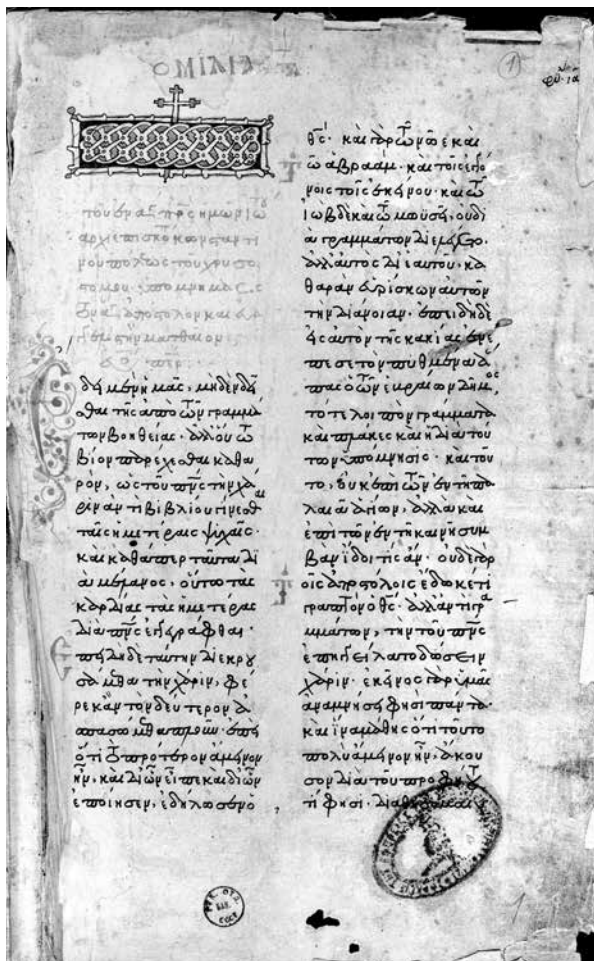 ΟΜΙΛΙΑ
τοῦ ἐν ἁγ πρς ἡμῶν ἰω
ἀρχιεπισκό κωνσταντι
νουπόλεως τοῦ χρυσο
στόμου· ὑπόμνημα εἰς
τὸν ἅγι ἀπόστολον καὶ εὐα
γ στὴν ματθαῖον·
Ἔδει μὲν ἡμᾶς, μηδὲν δεῖ
σθαι τῆς ἀπὸ τῶν γραμμά
των βοηθείας· ἀλλ' οὕτω
βίον παρέχεσθαι καθα
ρόν, ὡς τοῦ πνς τὴν χά
ριν ἀντὶ βιβλίων γίνεσθαι
ταῖς ἡμετέραις ψυχαῖς·
καὶ καθάπερ ταῦτα δι
ὰ μέλανος, οὕτω τὰς
καρδίας τὰς ἡμετέρας
διὰ πνς ἐγγεγράφθαι·
Ἐπειδὴ δὲ ταύτην διεκρου
σάμεθα τὴν χάριν, φέ
ρε κἂν τὸν δεύτερον ἀ
σπασώμεθα πλοῦν· ἐπεὶ
ὅτι τὸ πρότερον ἄμεινον
ἦν, καὶ δι' ὧν εἶπε καὶ δι' ὧν
ἐποίησεν, ἐδήλωσεν ὁ
θς· καὶ γὰρ τῶ νῶε καὶ
τῶ ἀβραάμ· καὶ τοῖς ἐγγό
νοις τοῖς ἐκείνου· καὶ τῶ
ἰὼβ δὲ καὶ τῶ μωυσῆ, οὐ δι
ὰ γραμμάτων διελέγετο·
ἀλλ' αὐτὸς δι' ἑαυτοῦ· κα
θαρὰν εὑρίσκων αὐτῶν
τὴν διάνοιαν· ἐπειδὴ δὲ
εἰς αὐτὸν τῆς κακίας ἐνέ
πεσε τὸν πυθμένα ἅ
πας ὁ τῶν ἑβραίων δῆμος,
τότε λοιπὸν γράμματα
καὶ πλάκες καὶ ἡ διὰ τού
των ὑπόμνησις· καὶ τοῦ
το, οὐκ ἐπὶ τῶν ἐν τῆ πα
λαιᾶ ἁγίων, ἀλλὰ καὶ
ἐπὶ τῶν ἐν τῆ καινῆ συμ
βὰν ἴδοι τις ἄν· οὐδὲ γὰρ
τοῖς ἀποστόλοις ἔδωκέ τι
γραπτὸν ὁ θς· ἀλλ' ἀντὶ γρα
μμάτων, τὴν τοῦ πνς
ἐπηγγείλατο δώσειν
χάριν· ἐκεῖνος γὰρ ὑμᾶς
ἀναμνήσει φησὶ πάντα·
καὶ ἵνα μάθης ὅτι τοῦτο
πολὺ ἄμεινον ἦν, ἄκου
σον διὰ τοῦ προφήτου
τί φησι· διαθήσομαι
1